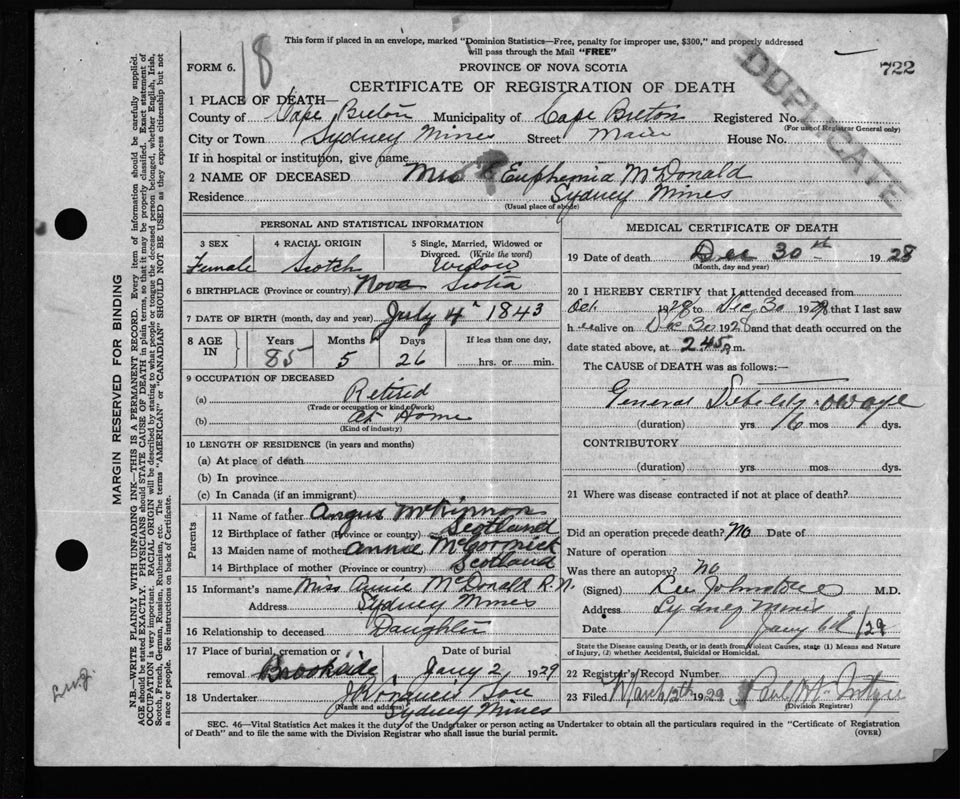 This form if placed in an envelope, marked "Dominion Statistics—Free, penalty for improper use, $300," and properly addressed
will pass through the Mail "FREE"
18
FORM 6.
PROVINCE OF NOVA SCOTIA
722
CERTIFICATE OF REGISTRATION OF DEATH
DUPLICATE
1 PLACE OF DEATH—
County of Cape Breton Municipality of Cape Breton Registered No.
(For use of Registrar General only)
City or Town Sydney Mines Street Main House No.
If in hospital or institution, give name
2 NAME OF DECEASED Mrs Euphemia McDonald
Residence Sydney Mines
(Usual place of abode)
PERSONAL AND STATISTICAL INFORMATION
3 SEX 4 RACIAL ORIGIN 5 Single, Married, Widowed or
Divorced. (Write the word)
Female Scotch Widow
6 BIRTHPLACE (Province or country) Nova Scotia
7 DATE OF BIRTH (month, day and year) July 4" 1843
8 AGE IN Years Months Days If less than one day,
85 5 26 hrs. or min.
9 OCCUPATION OF DECEASED
(a) Retired
(Trade or occupation or kind of work)
(b) At Home
(Kind of industry)
10 LENGTH OF RESIDENCE (in years and months)
(a) At place of death
(b) In province
(c) In Canada (if an immigrant)
Parents
11 Name of father Angus McKinnon
12 Birthplace of father (Province or country) Scotland
13 Maiden name of mother Annie McCormick
14 Birthplace of mother (Province or country) Scotland
15 Informant's name Miss Annie McDonald R.N.
Address Sydney Mines
16 Relationship to deceased Daughter
17 Place of burial, cremation or Date of burial
removal Brookside Jany 2 1929
18 Undertaker Son
(Name and address) Sydney Mines
MEDICAL CERTIFICATE OF DEATH
19 Date of death Dec 30th 1928
(Month, day and year)
20 I HEREBY CERTIFY that I attended deceased from
Oct. 1928 to Dec 30 1928 that I last saw
h er alive on Dec 30 1928 and that death occurred on the
date stated above, at 2 45 p.m.
The CAUSE of DEATH was as follows:—
General Debility old age
(duration) yrs mos dys.
CONTRIBUTORY
(duration) yrs. mos. dys.
21 Where was disease contracted if not at place of death?
Did an operation precede death? No Date of
Nature of operation
Was there an autopsy? no
(Signed) Johnstone M.D.
Address Sydney Mines
Date Jany /29
State the Disease causing Death, or in death from Violent Causes, state (1) Means and Nature
of Injury, (2) whether Accidental, Suicidal or Homicidal.
22 Registrar's Record Number
23 Filed March 12th 1929
(Division Registrar)
SEC. 46—Vital Statistics Act makes it the duty of the Undertaker or person acting as Undertaker to obtain all the particulars required in the "Certificate of Registration
of Death" and to file the same with the Division Registrar who shall issue the burial permit.
(OVER)
MARGIN RESERVED FOR BINDING
N.B.—WRITE PLAINLY WITH UNFADING INK—THIS IS A PERMANENT RECORD. Every item of information should be carefully supplied.
AGE should be stated EXACTLY. PHYSICIANS should STATE CAUSE OF DEATH in plain terms, so that it may be properly classified. Exact statement of
OCCUPATION is very important. RACIAL ORIGIN will be described by stating to what people or tongue the deceased person belonged, whether English, Irish,
Scotch, French, German, Russian, Ruthenian, etc. The terms "AMERICAN" or "CANADIAN" SHOULD NOT BE USED as they express citizenship but not
a race or people. See instructions on back of Certificate.